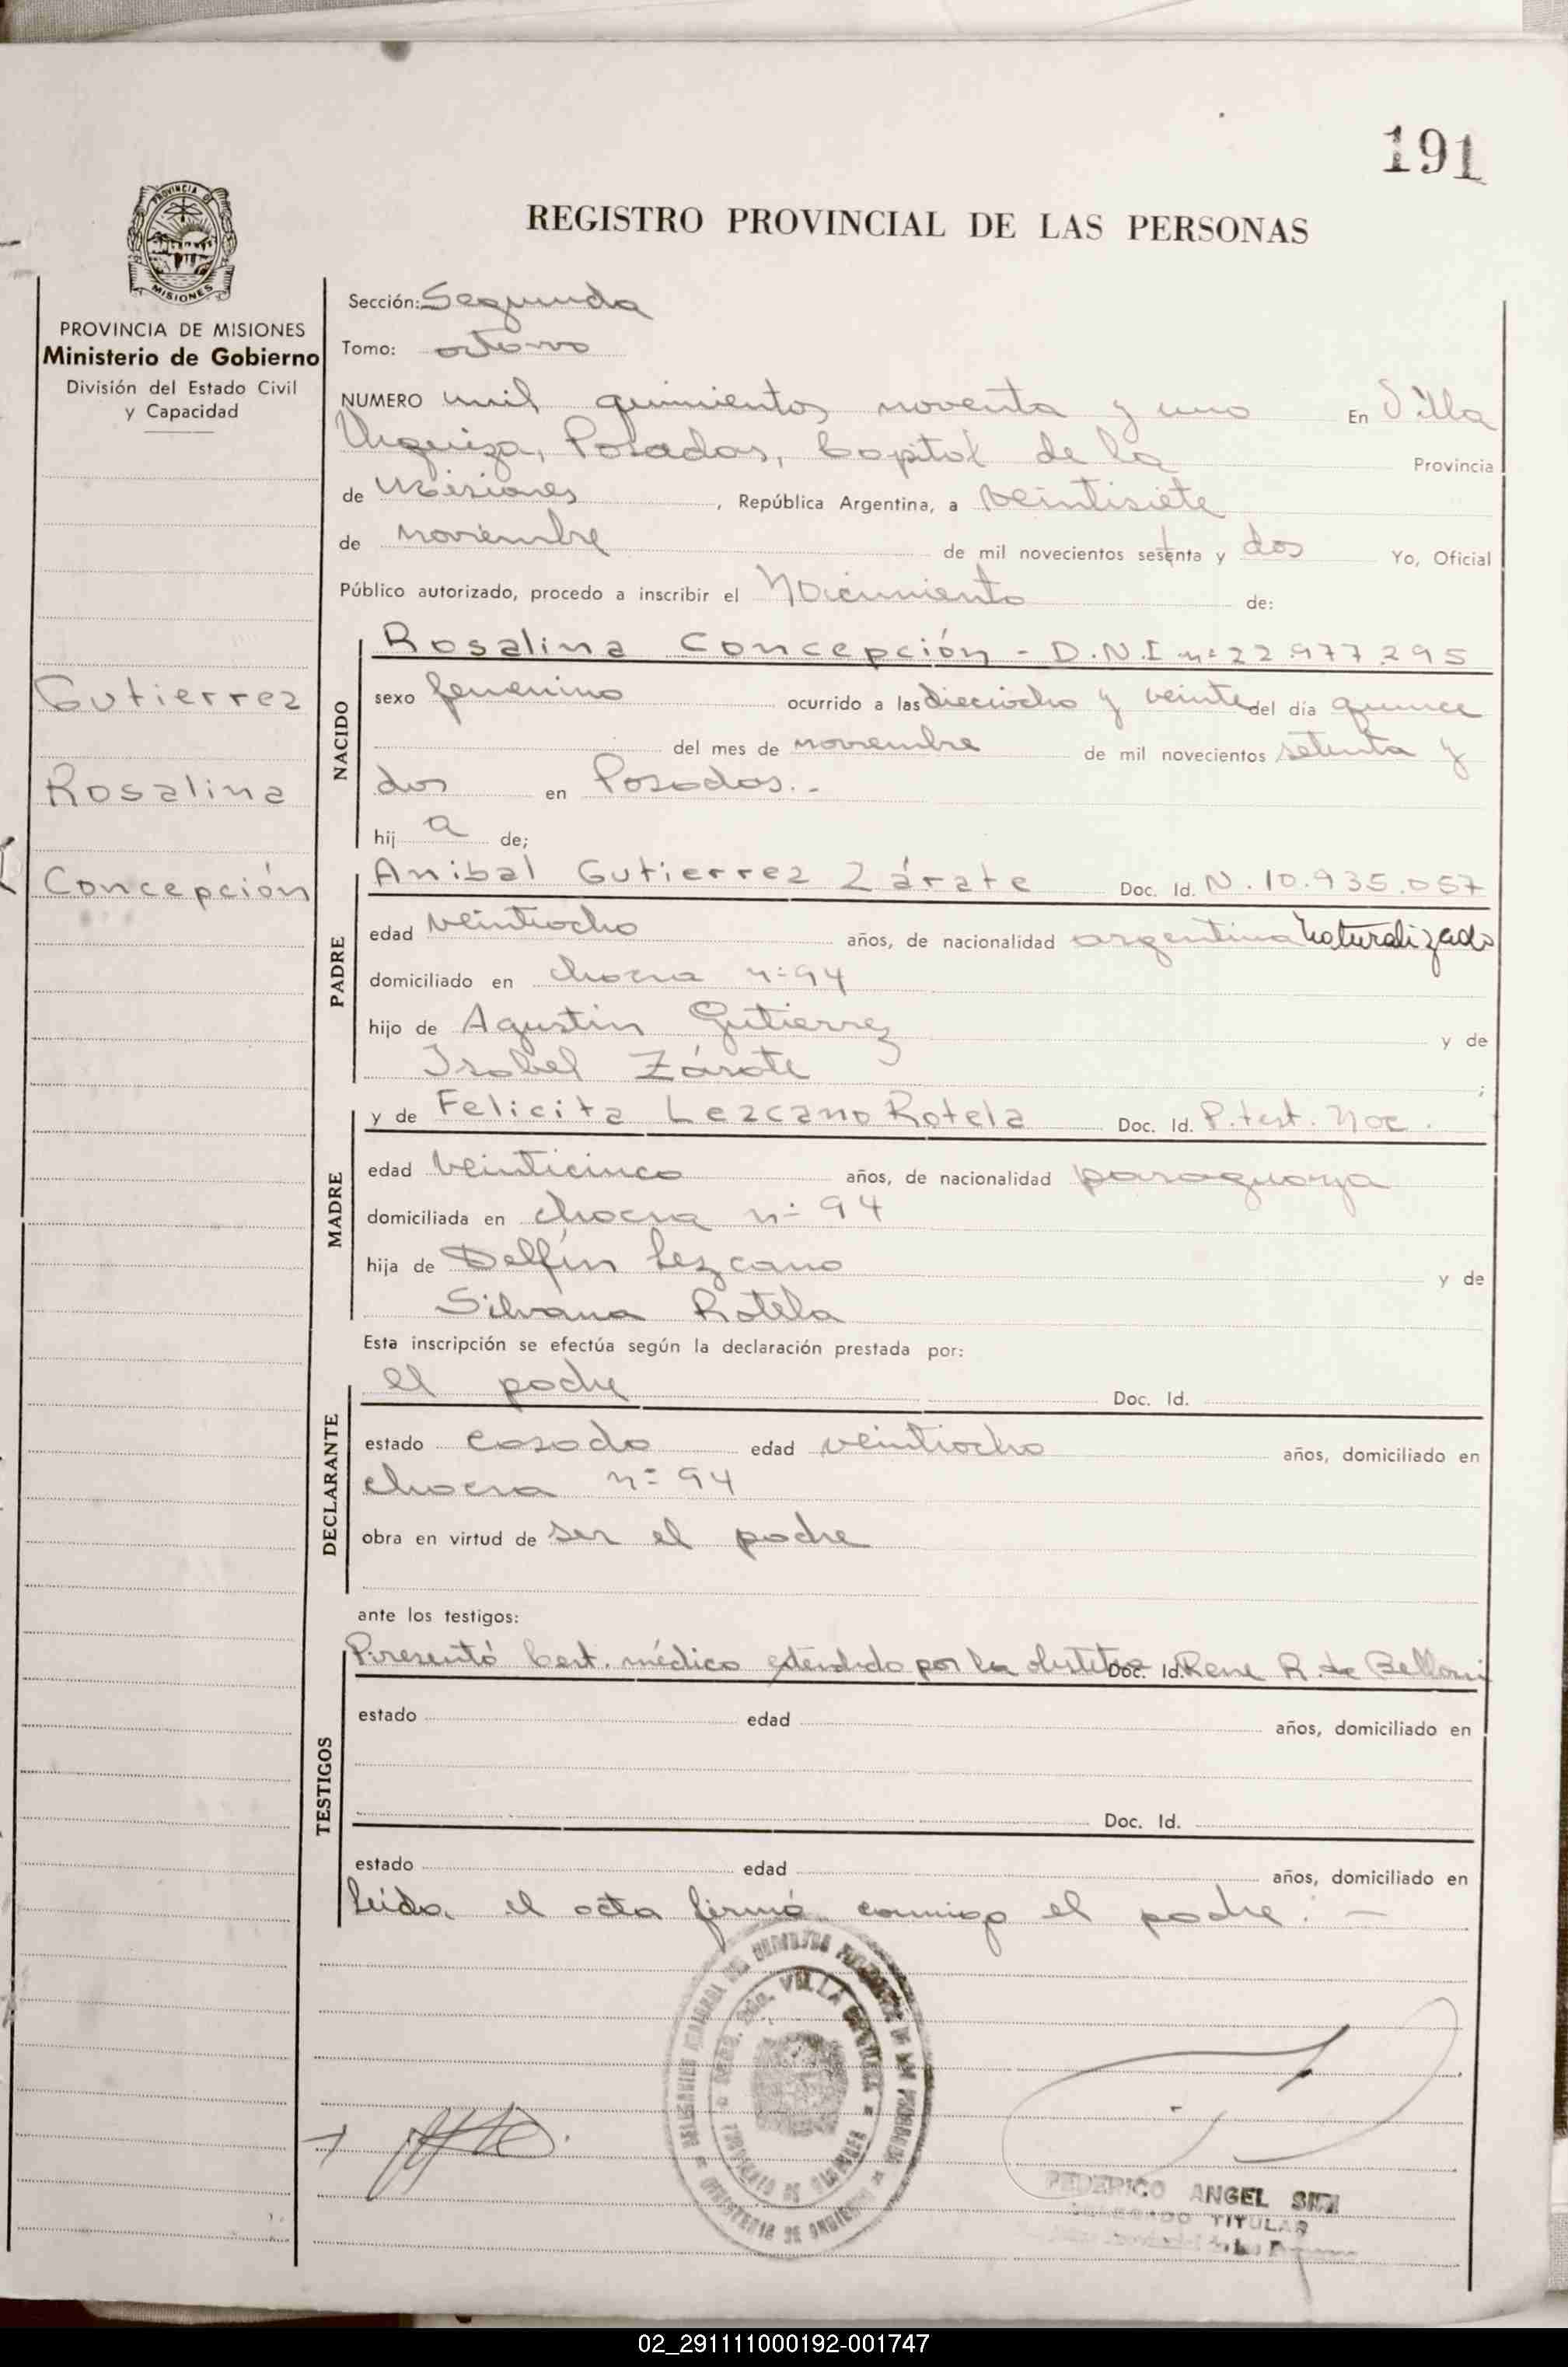 191
PROVINCIA DE
MISIONES
REGISTRO PROVINCIAL DE LAS PERSONAS
PROVINCIA DE MISIONES
Ministerio de Gobierno
División del Estado Civil
y Capacidad
Gutierrez
Rosalina
Concepción
Sección: Segunda
Tomo: octavo
NUMERO mil quinientos noventa y uno En Villa
Urquiza, Posadas, Capital de la Provincia
de Misiones, República Argentina, a veintisiete
de noviembre de mil novecientos setenta y dos Yo, Oficial
Público autorizado, procedo a inscribir el Nacimiento de:
NACIDO
Rosalina Concepción - D.N.I nº 22.977.295
sexo femenino ocurrido a las dieciocho y veinte del día quince
del mes de noviembre de mil novecientos setenta y
dos en Posadas.-
hij a de;
PADRE
Anibal Gutierrez Zárate Doc. Id. N. 10.935.057
edad veintiocho años, de nacionalidad argentina naturalizado
domiciliado en chacra nº 94
hijo de Agustin Gutierrez y de
Isabel Zárate ;
MADRE
y de Felicita Lezcano Rotela Doc. Id. P. test. Nac.
edad veinticinco años, de nacionalidad paraguaya
domiciliada en chacra nº 94
hija de Delfin Lezcano y de
Silvana Rotela
Esta inscripción se efectúa según la declaración prestada por:
DECLARANTE
el padre Doc. Id.
estado casado edad veintiocho años, domiciliado en
chacra nº 94
obra en virtud de ser el padre
ante los testigos:
TESTIGOS
Presentó Cert. médico extendido por la obstetra Doc. Id. Rene R. de Belloni
estado edad años, domiciliado en
Doc. Id.
estado edad años, domiciliado en
Leida el acta firmó conmigo el padre. -
VILLA URQUIZA
FEDERICO ANGEL
DELEGADO TITULAR
02_291111000192-001747